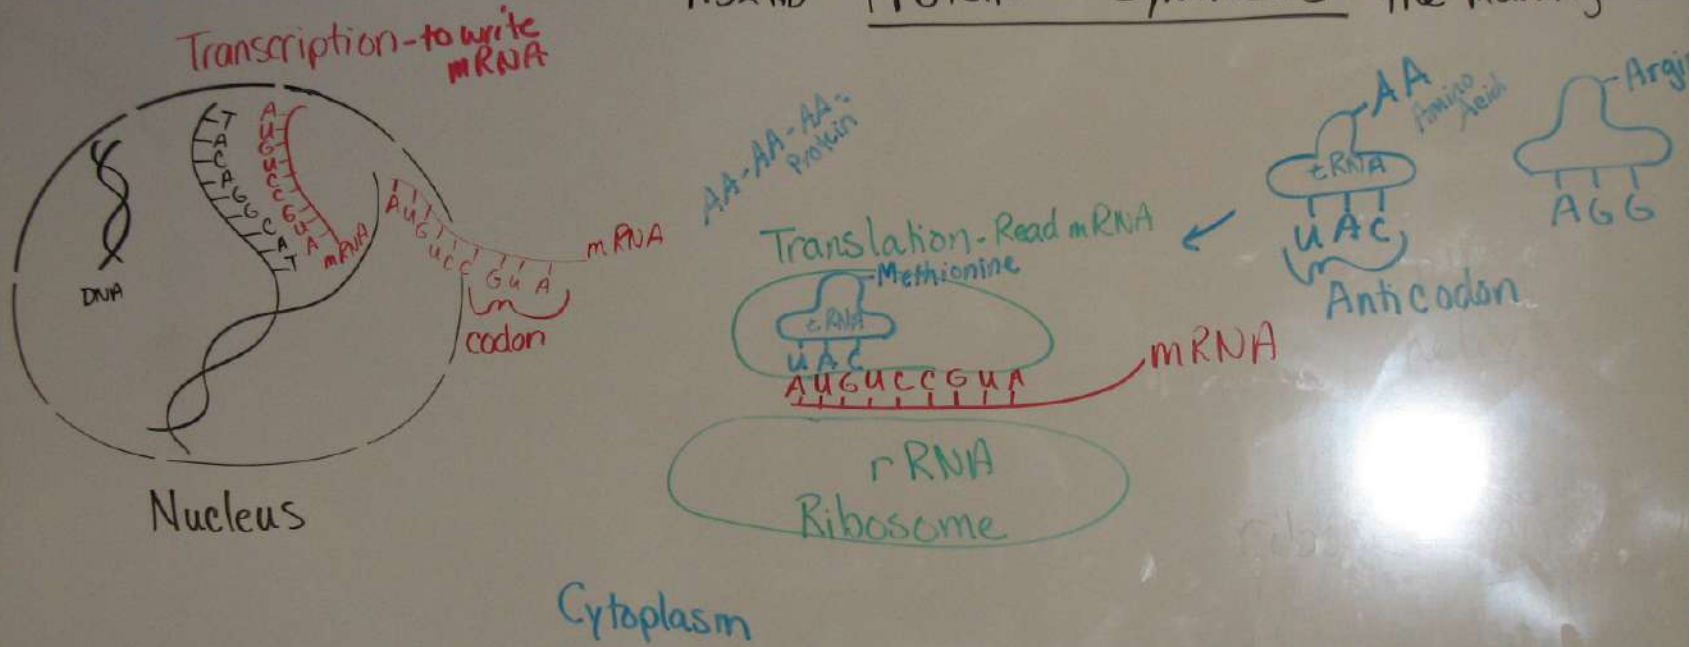 Protein
The Making
Transcription-to write
mRNA
T
A
C
A
G
G
C
A
T
A
U
G
U
C
C
G
U
A
mRNA
DNA
AUGUCC GUA
mRNA
codon
Nucleus
AA-AA-AA-AA-
Protein
Translation-Read mRNA
Methionine
tRNA
UAC
AUGUCCGUA
mRNA
rRNA
Ribosome
Cytoplasm
AA
Amino
Acid
tRNA
UAC
Anticodon
Argi
AGG